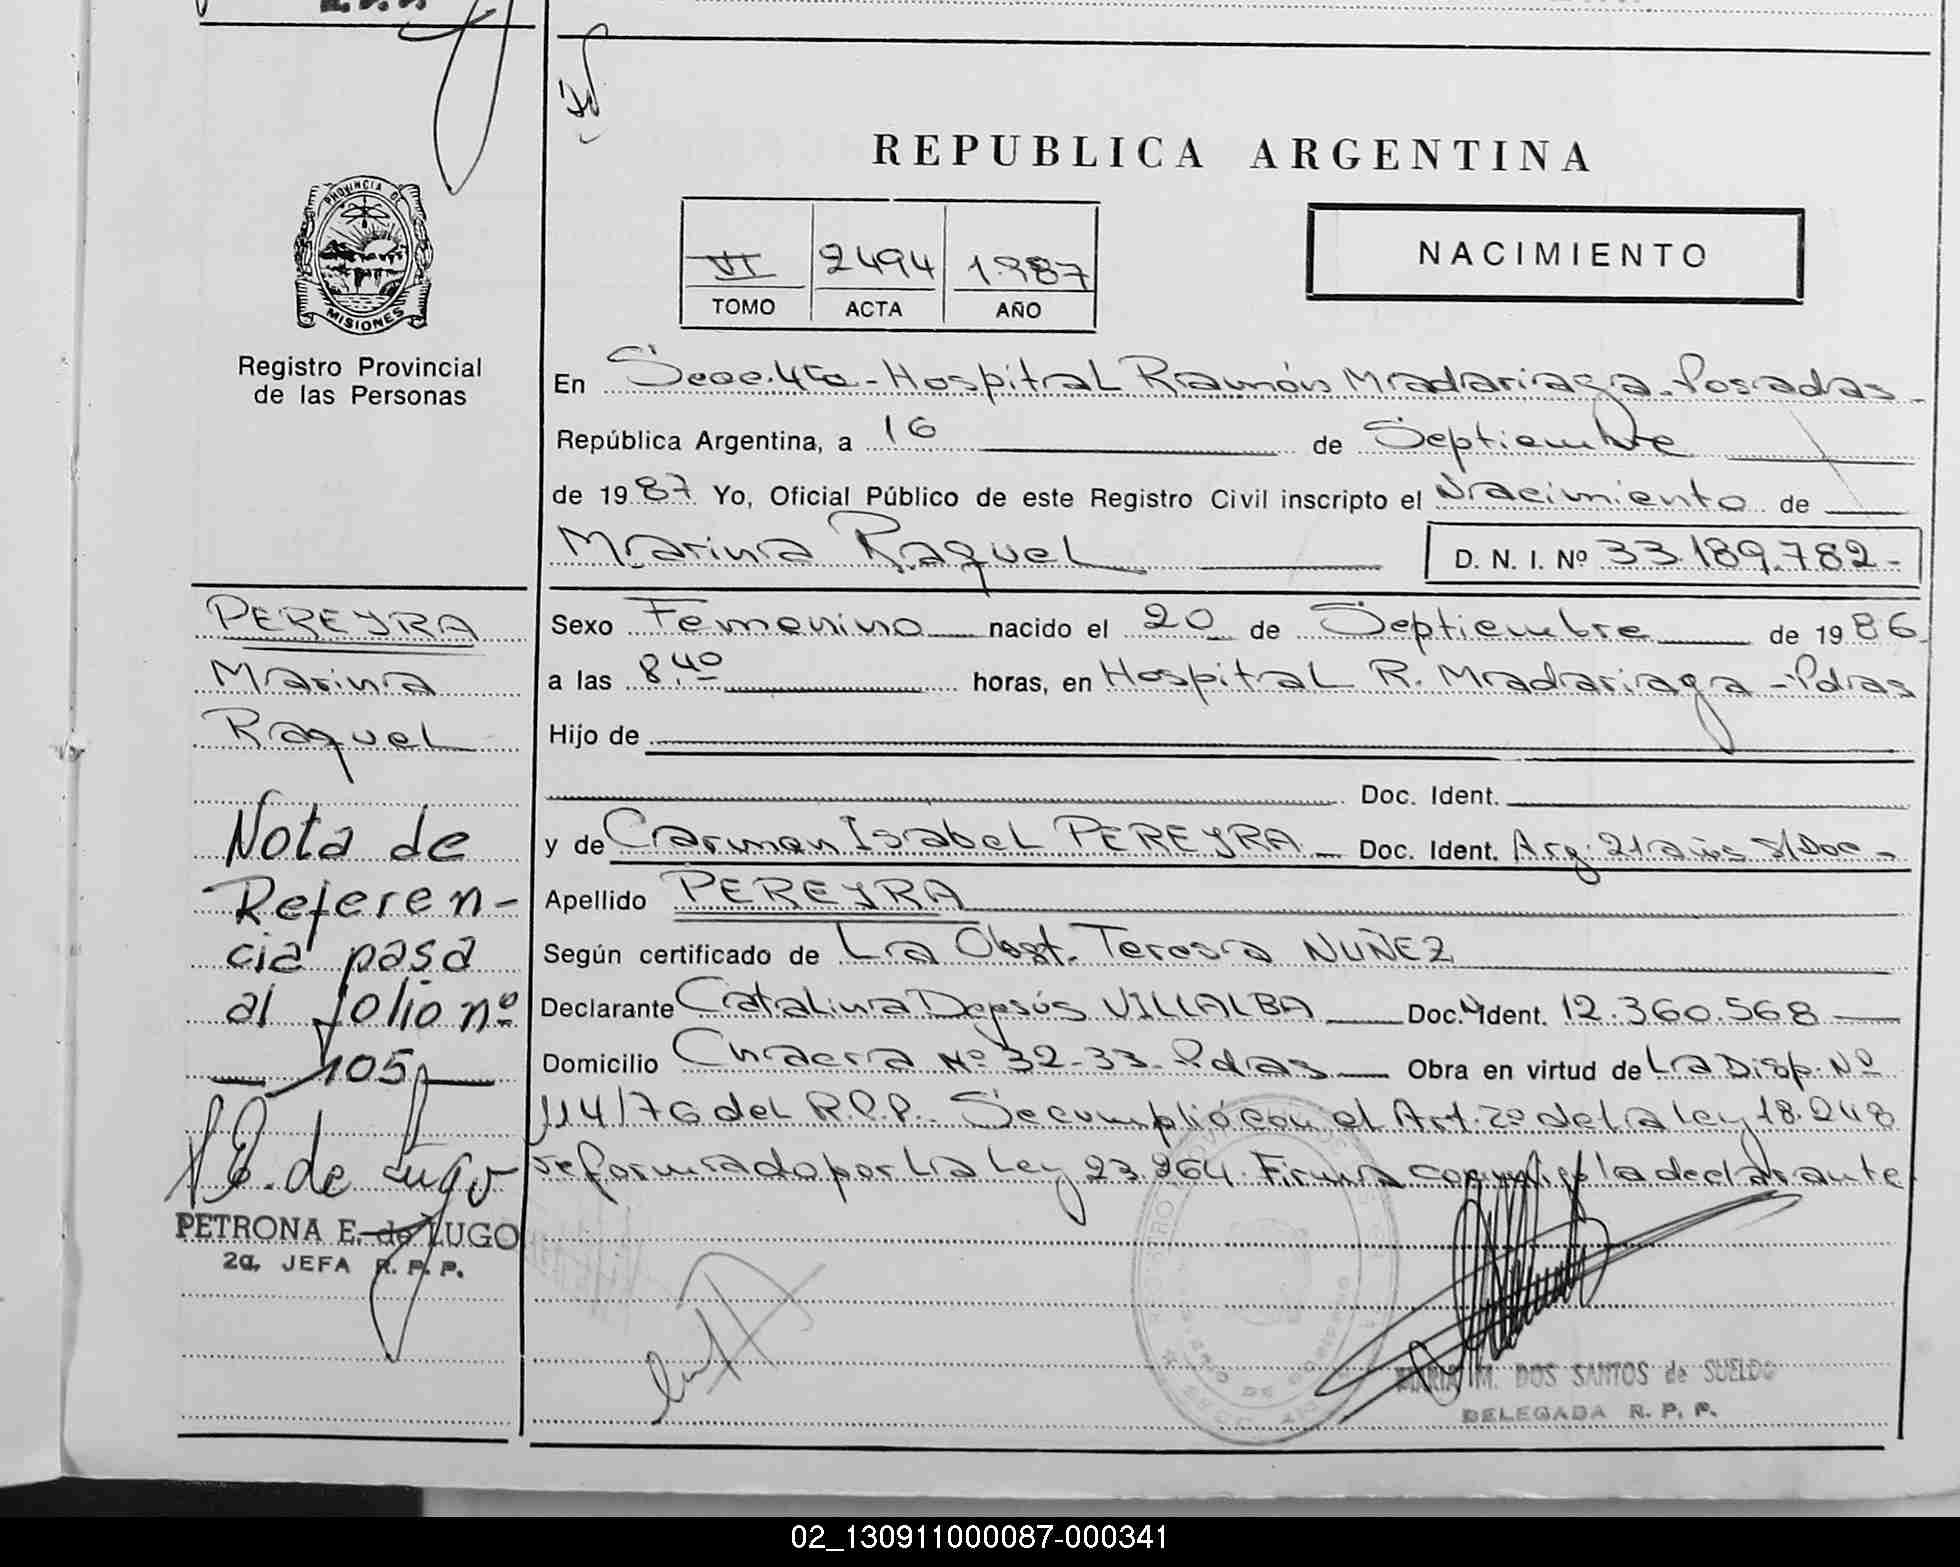 REPUBLICA ARGENTINA
NACIMIENTO
VI 2494 1.987
TOMO ACTA AÑO
PROVINCIA DE
MISIONES
Registro Provincial
de las Personas
En Secc. 4ta - Hospital Ramón Madariaga - Posadas -
República Argentina, a 16 de Septiembre
de 1987 Yo, Oficial Público de este Registro Civil inscripto el Nacimiento de
Marina Raquel D. N. I. Nº 33.189.782-
Sexo Femenino nacido el 20 de Septiembre de 1986
a las 8,40 horas, en Hospital R. Madariaga - Pdas
Hijo de
Doc. Ident.
y de Carmen Isabel PEREYRA Doc. Ident. Arg. 21 años S/Doc -
Apellido PEREYRA
Según certificado de La Obst. Teresa NUÑEZ
Declarante Catalina Depsús VILLALBA Doc. Ident. 12.360.568
Domicilio Chacra Nº 32-33 - Pdas Obra en virtud de La Disp. Nº
114/76 del R.P.P. Se cumplió con el Art. 2º de la Ley 18.248
reformado por La Ley 23.264. Firma conmigo la declarante
PEREYRA
Marina
Raquel
Nota de
Referen-
cia pasa
al folio nº
105
E. de Lugo
PETRONA E. de LUGO
2a. JEFA R. P. P.
MARIA M. DOS SANTOS de SUELDO
DELEGADA R. P. P.
02_130911000087-000341